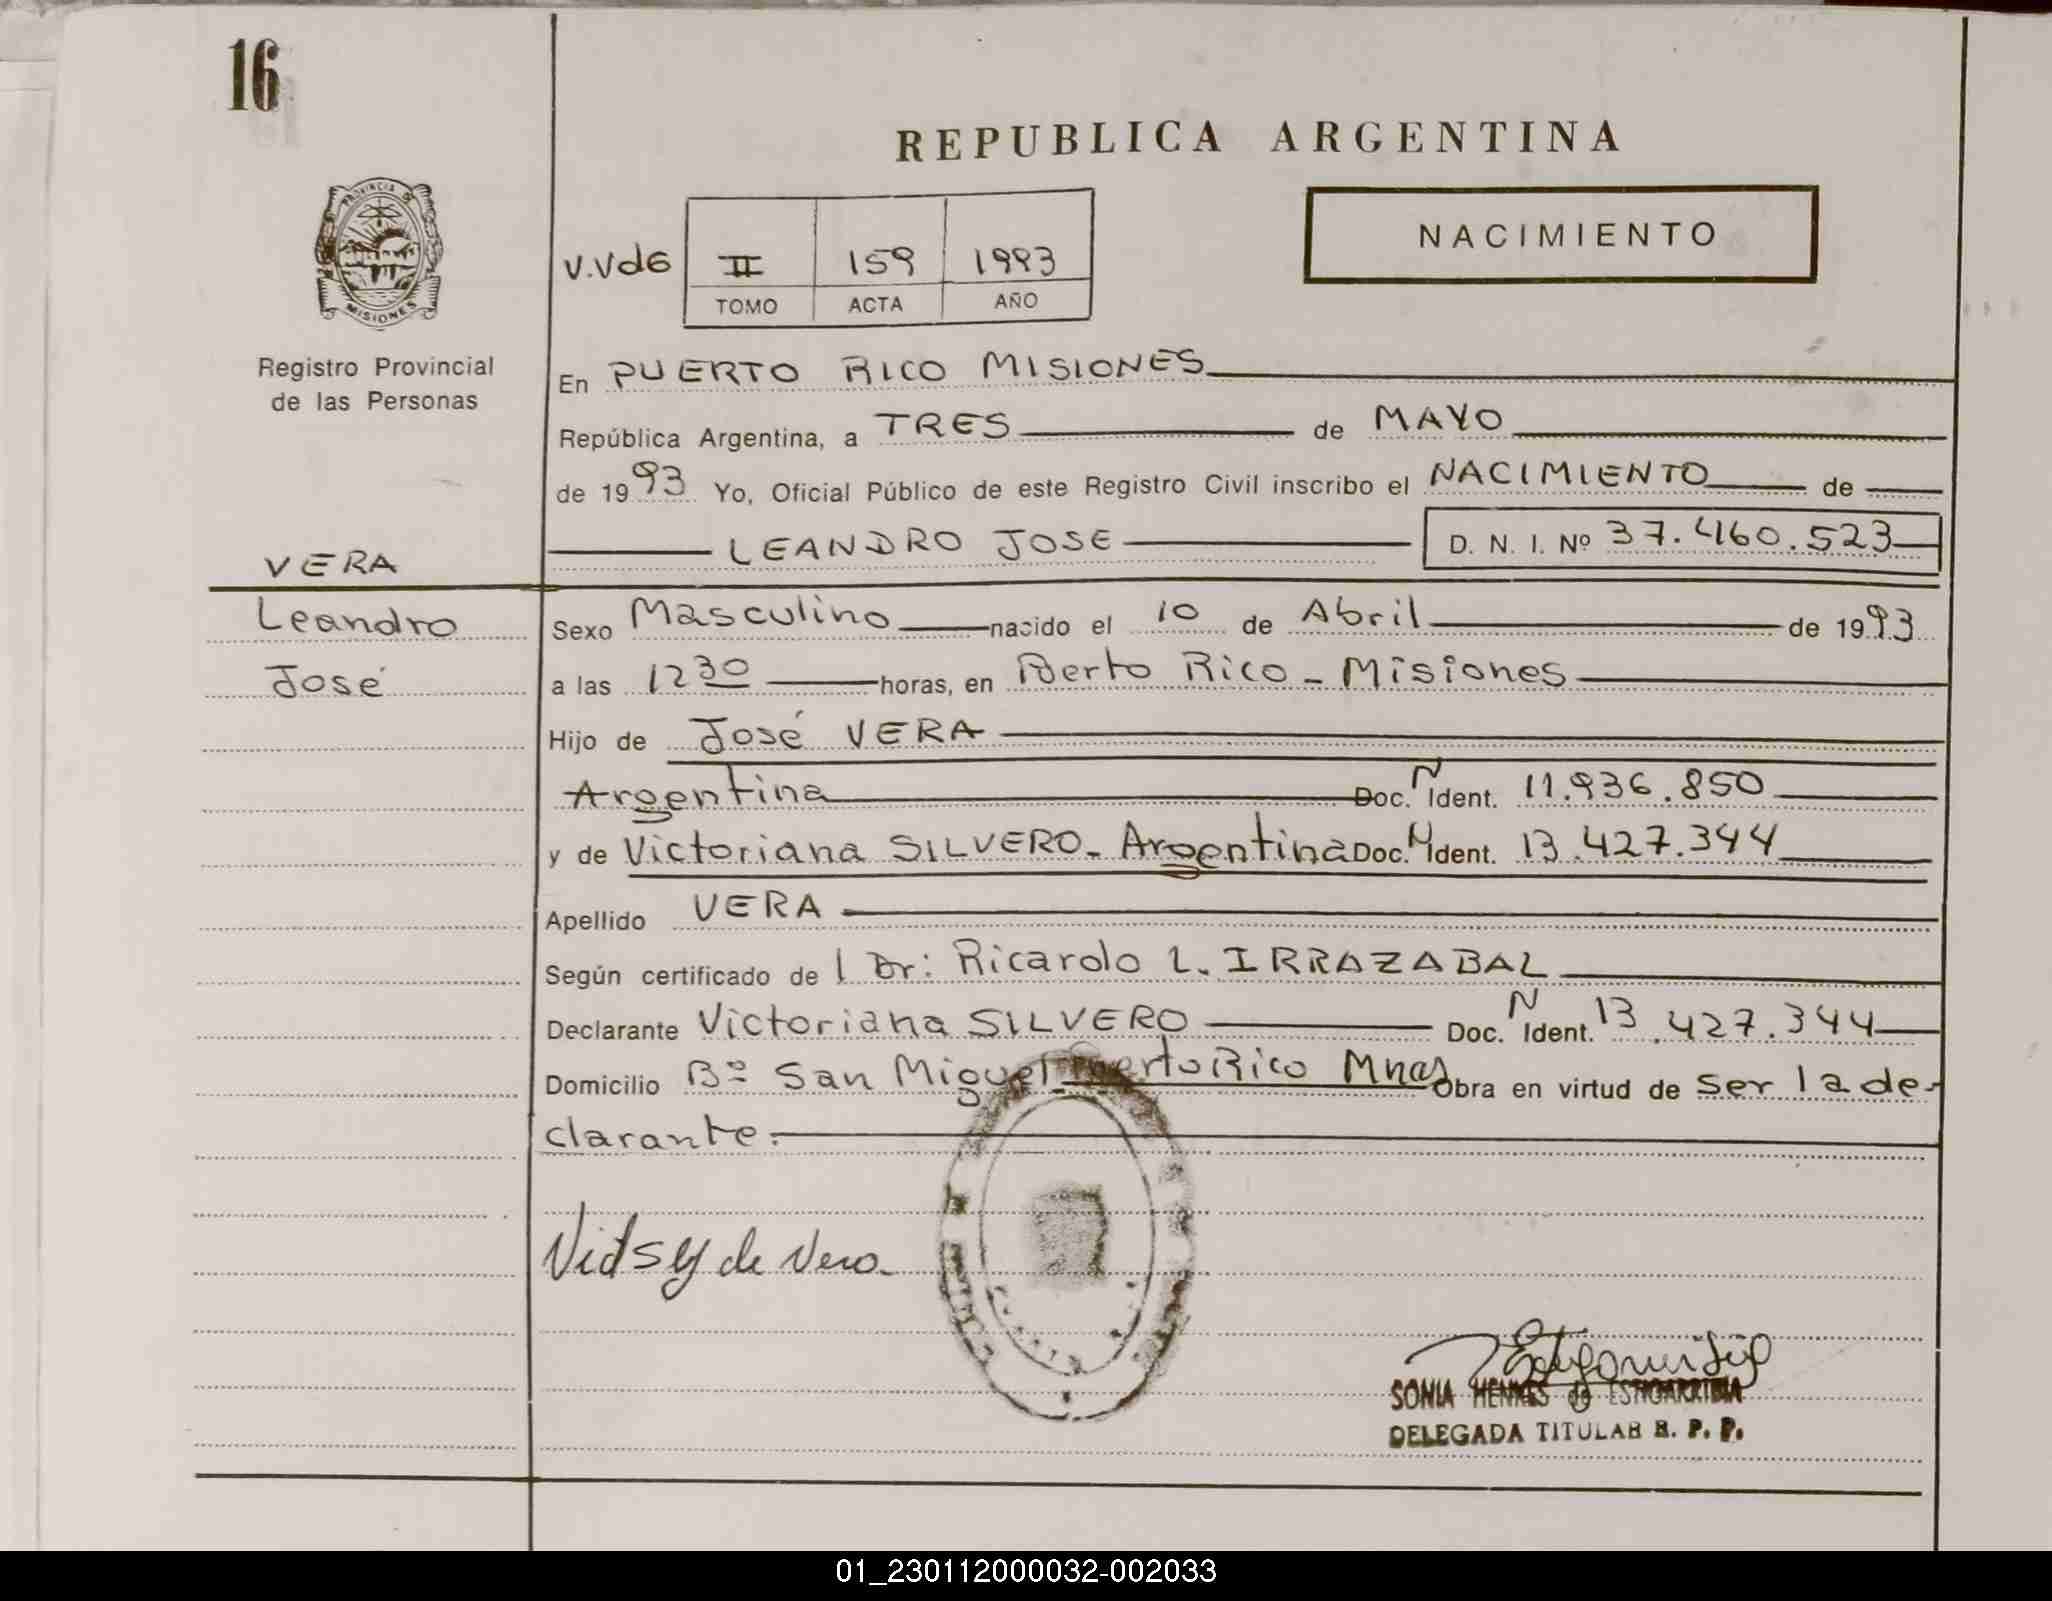 16
REPUBLICA ARGENTINA
PROVINCIA DE
MISIONES
NACIMIENTO
V.Vd6 II 159 1993
TOMO ACTA AÑO
Registro Provincial
de las Personas
En PUERTO RICO MISIONES
República Argentina, a TRES de MAYO
de 1993 Yo, Oficial Público de este Registro Civil inscribo el NACIMIENTO de
LEANDRO JOSE D. N. I. Nº 37.460.523
VERA
Leandro
José
Sexo Masculino nacido el 10 de Abril de 1993
a las 12 30 horas, en Puerto Rico - Misiones
Hijo de José VERA
Argentina Doc. N Ident. 11.936.850
y de Victoriana SILVERO - Argentina Doc. N Ident. 13.427.344
Apellido VERA
Según certificado de l Dr: Ricardo L. IRRAZABAL
Declarante Victoriana SILVERO Doc. N Ident. 13.427.344
Domicilio Bº San Miguel Puerto Rico Mnes Obra en virtud de ser la de-
clarante.
de Vera
SONIA HENNES de ESTIGARRIBIA
DELEGADA TITULAR R. P. P.
01_230112000032-002033